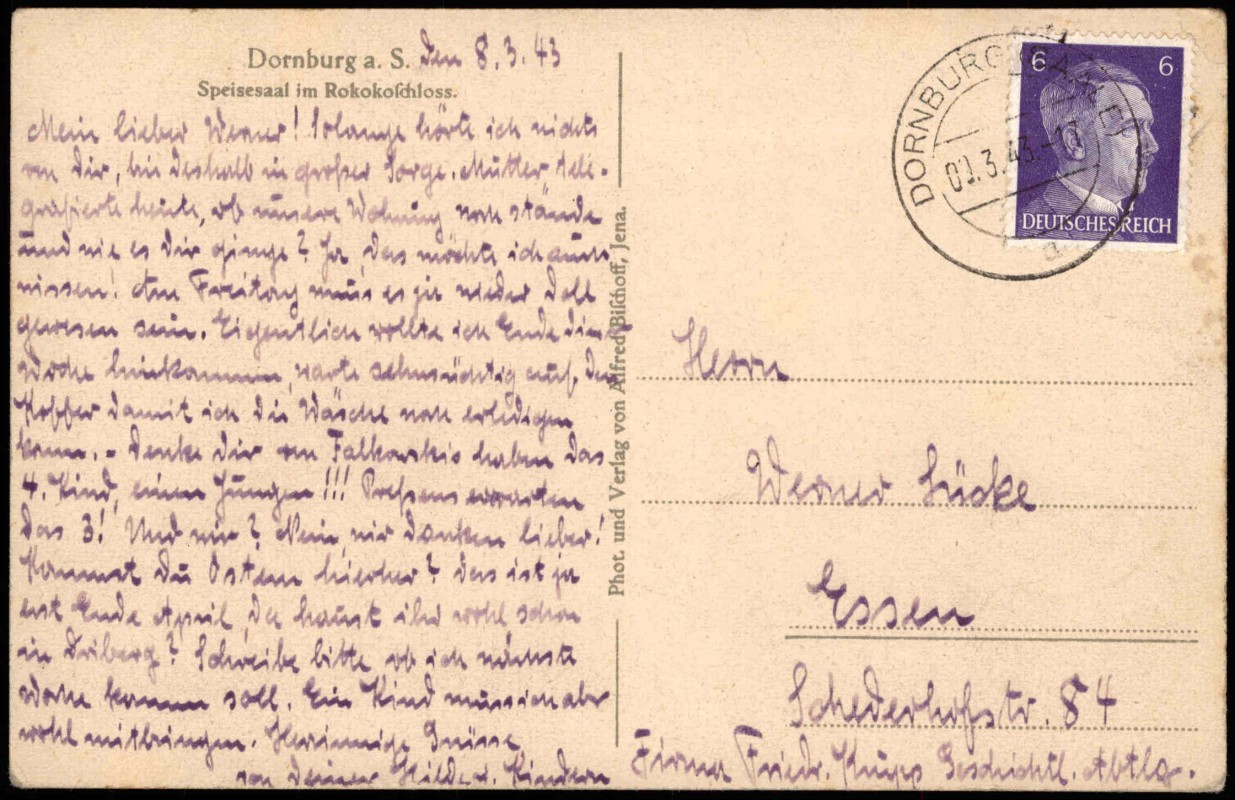 Dornburg a. S. den 8.3.43
Speisesaal im Rokokoschloss.
Mein lieber Werner! Solange hörte ich nichts
von Dir, bin deshalb in großer Sorge. Mutter tele-
grafierte heute, ob unsere Wohnung noch stände
und wie es Dir ginge? Ja, das möchte ich auch
wissen! Am Freitag muss es ja wieder doll
gewesen sein. Eigentlich wollte ich Ende dieser
Woche hinkommen, warte sehnsüchtig auf den
Koffer damit ich die Wäsche noch erledigen
kann. - Denke Dir von Falkowskis haben das
4. Kind, einen Jungen!!! erwarten
das 3! Und wir? Nein, wir danken lieber!
Kommst Du Ostern hierher? Das ist ja
erst Ende April, da haust ihr wohl schon
in Driberg? Schreibe bitte, ob ich nächste
Woche kommen soll. Ein Kind muss ich aber
wohl mitbringen. Herzinnige Grüsse
von Deiner Hilde u. Kindern
Phot. und Verlag von Alfred Bischoff, Jena.
DORNBURG (SAALE)
3.43.
a
6 6
DEUTSCHES REICH
Herrn
Werner Lücke
Essen
Schederhofstr. 84
Firma Friedr. Krupp Geschichtl. Abtlg.